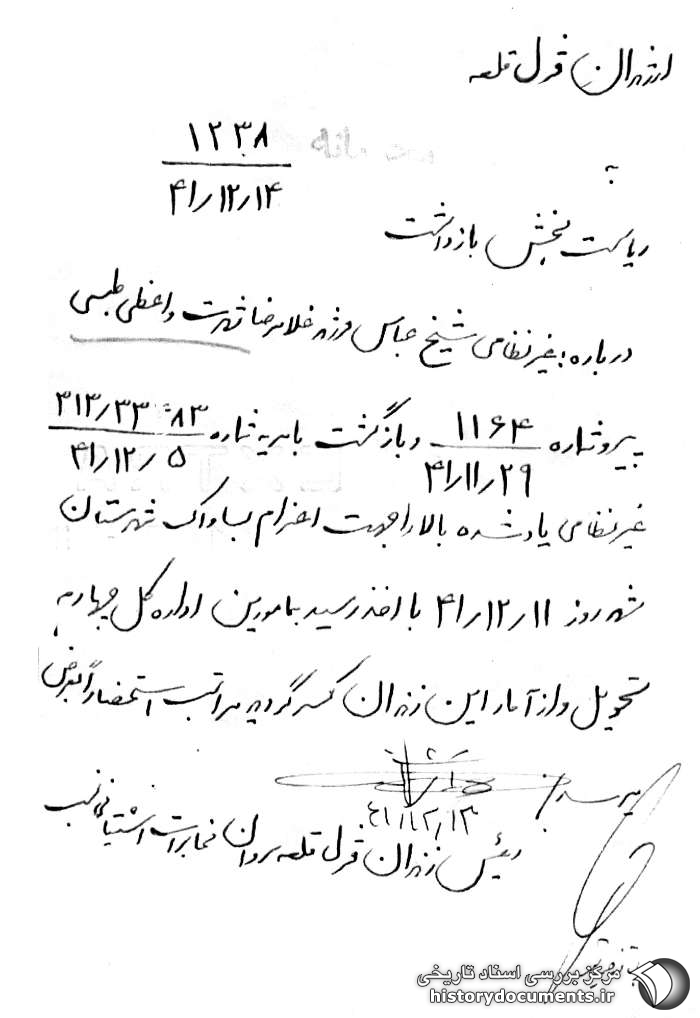 از زندان قزل قلعه
محرمانه
۱۲۳۸
۴۱/۱۲/۱۴
به
ریاست بخش بازداشت
درباره: غیرنظامی شیخ عباس فرزند غلامرضا شهرت واعظی طبسی
پیرو شماره ۱۱۶۴ - ۴۱/۱۱/۲۹ و بازگشت بامریه شماره ۳۱۳/۳۳۰۸۳ - ۴۱/۱۲/۵
غیرنظامی یاد شده بالا را جهت اعزام بساواک شهرستان
مشهد روز ۴۱/۱۲/۱۱ با اخذ رسید بمامورین اداره کل چهارم
تحویل و از آمار این زندان کسر گردید مراتب استحضاراً بعرض
میرسد.
۴۱/۱۲/۱۳
رئیس زندان قزل قلعه
مرکز بررسی اسناد تاریخی
historydocuments.ir